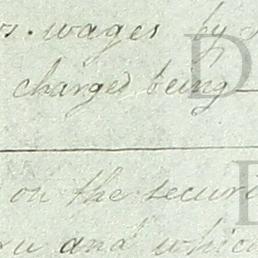 wages by
charged being
on the secure
and which